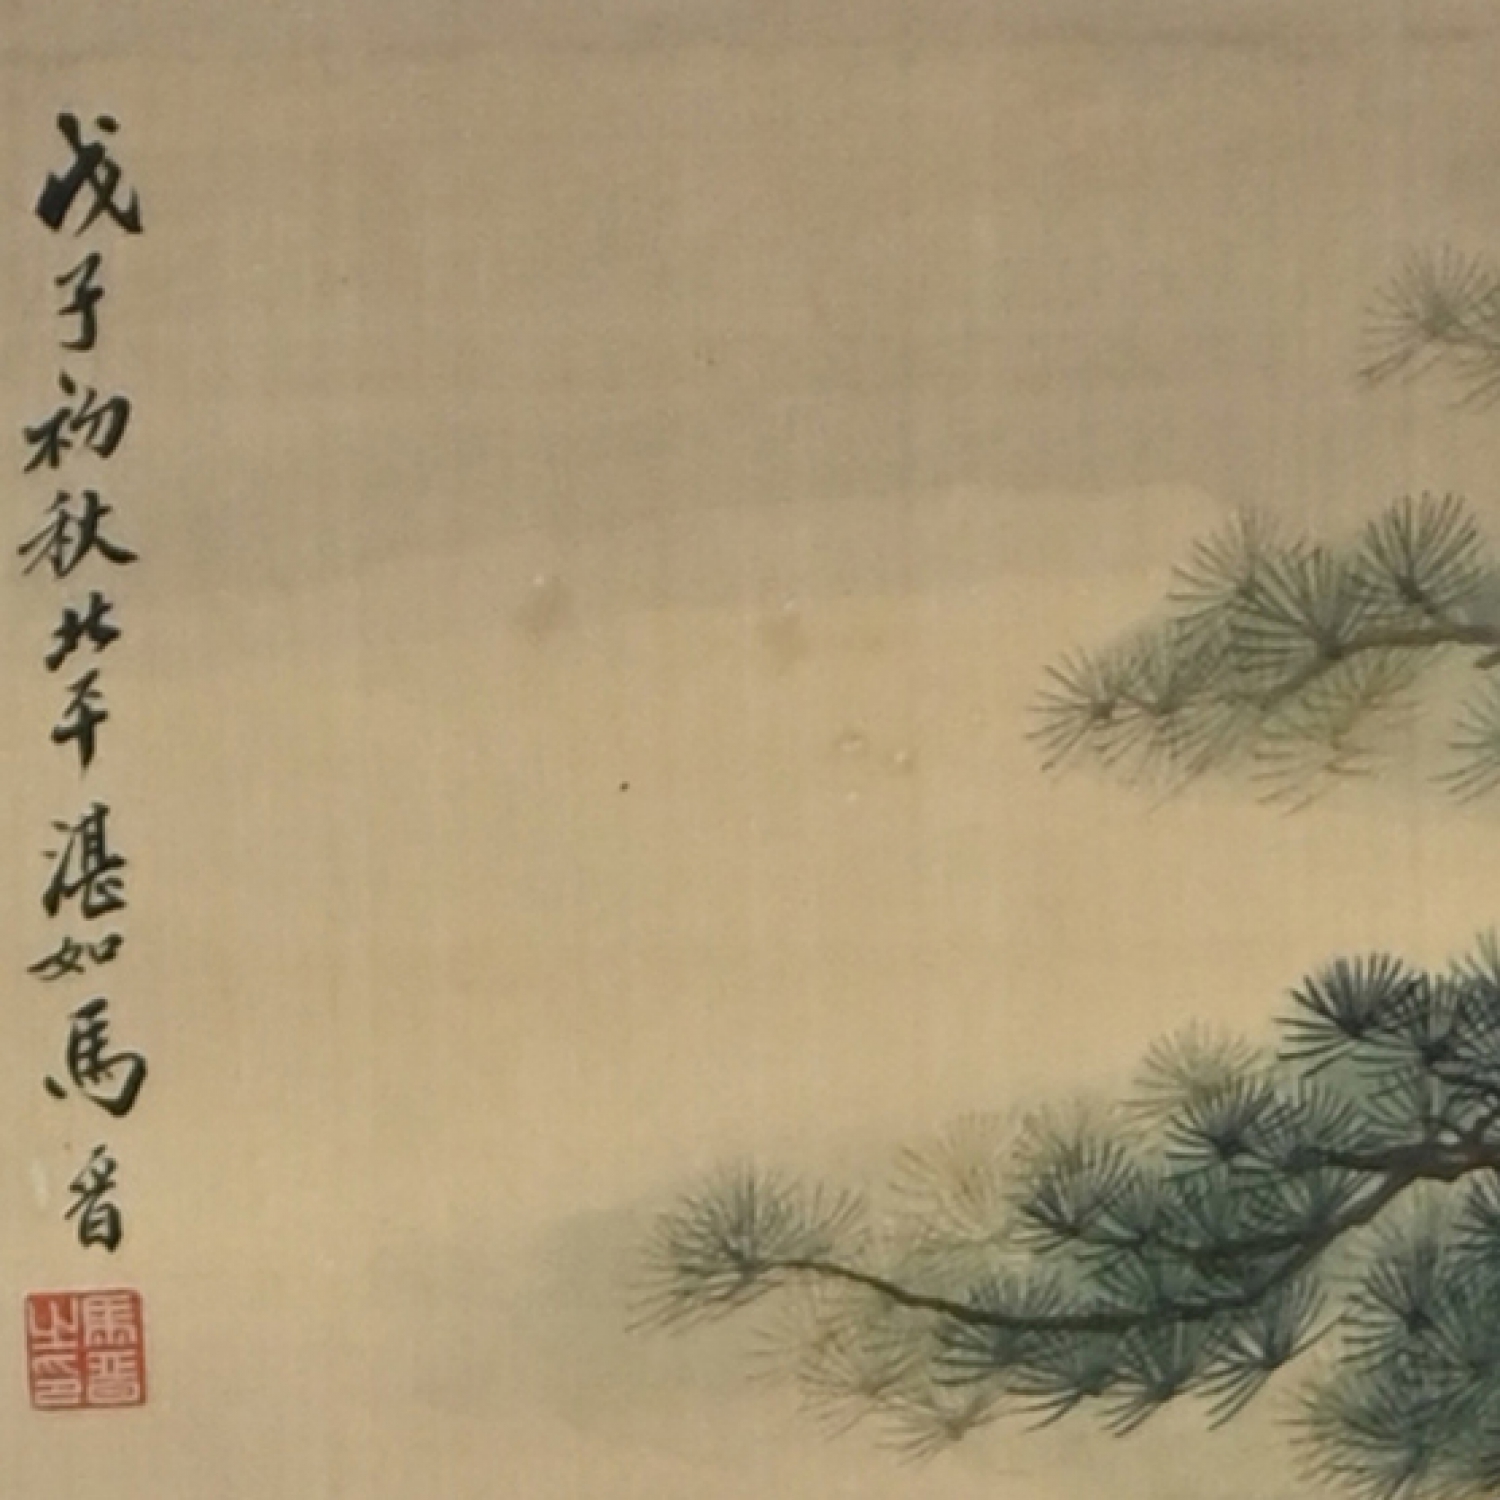 戊子初秋北平湛如馬晉
馬晉
之印